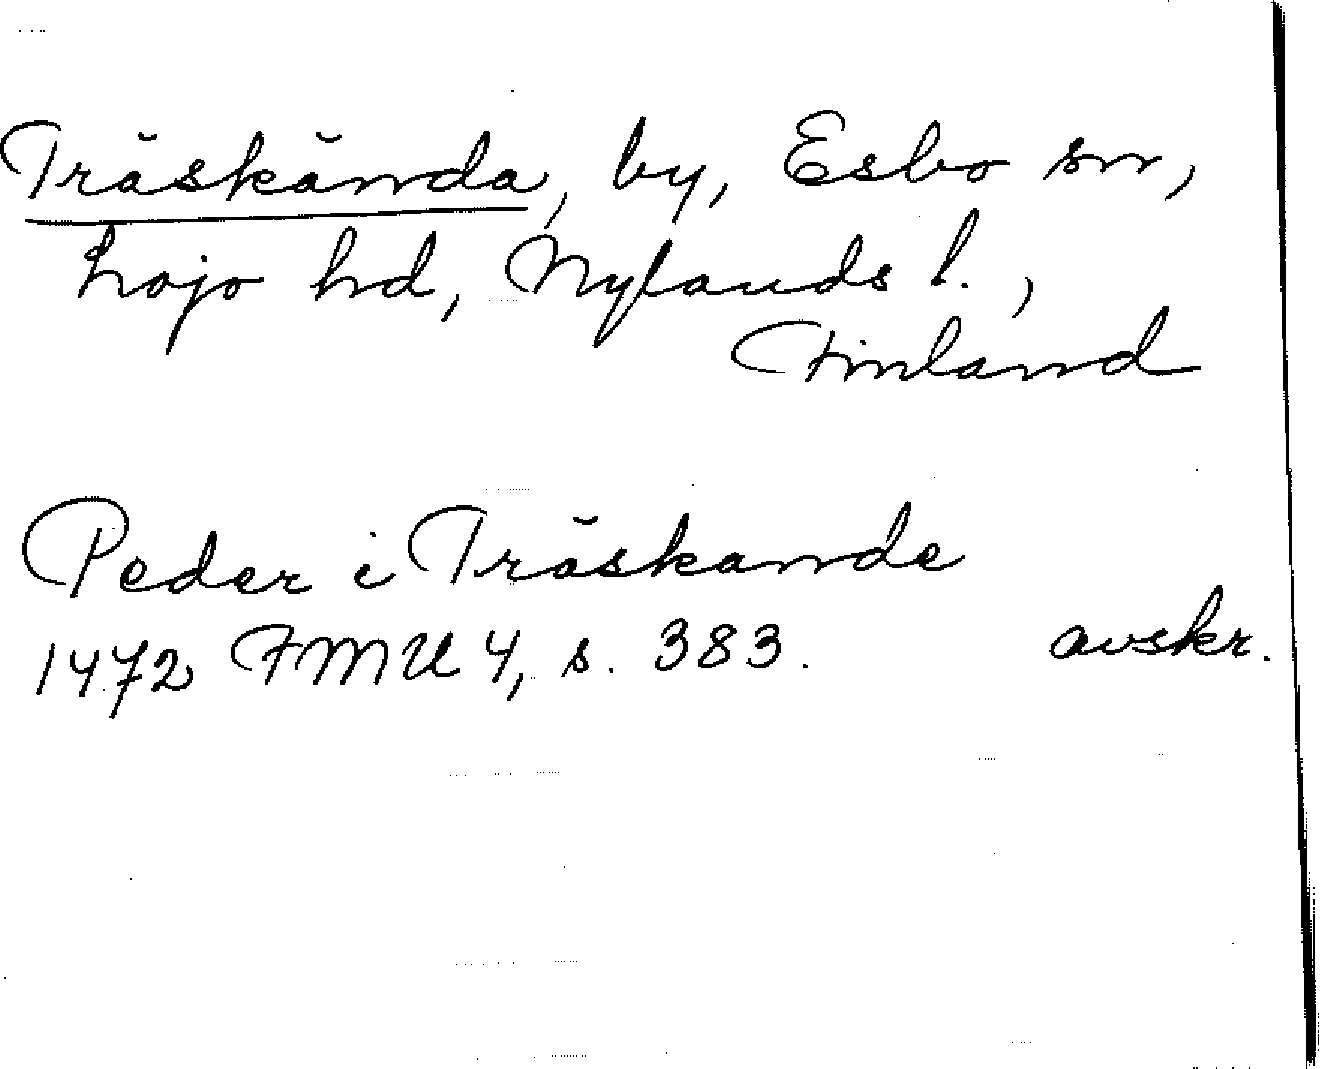 Träskända, by, Esbo sn,
Lojo hd, Nylands l.,
Finland
Peder i Träskande
1472 FMU 4, s. 383. avskr.